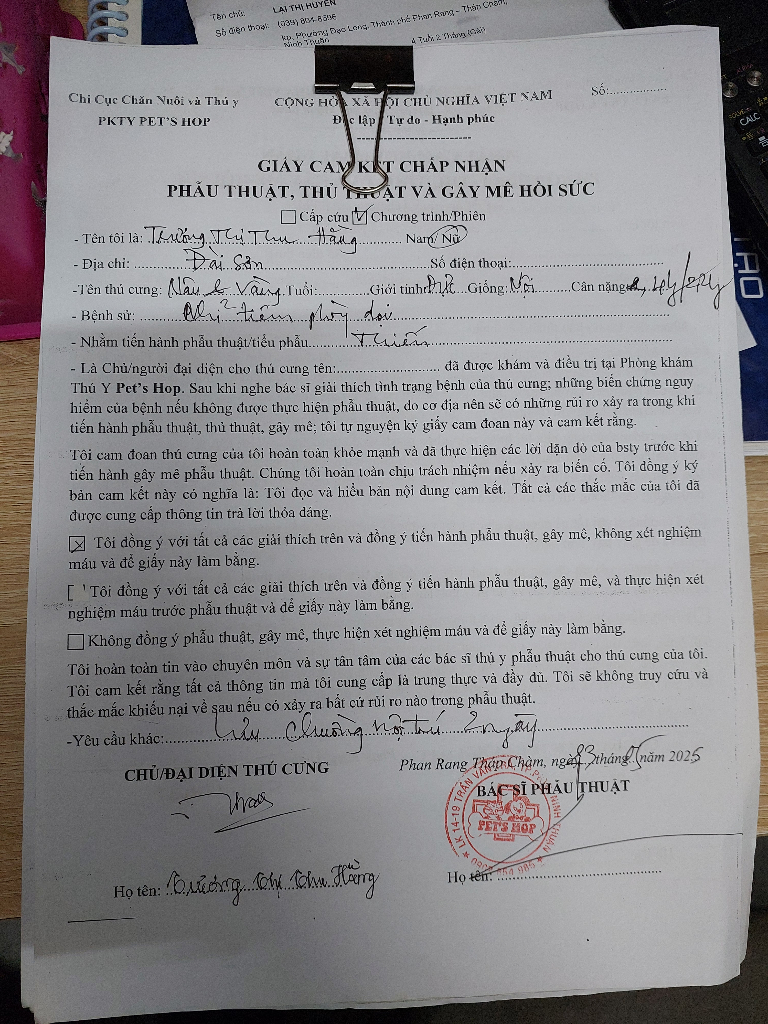 Tên chủ: LẠI THỊ HUYỀN
Số điện thoại: (039) 804-8396
kp, Phường Đạo Long, Thành phố Phan Rang - Tháp Chàm,
Ninh Thuận
4 Tuổi 2 Tháng (Gái)
Chi Cục Chăn Nuôi và Thú y CỘNG HÒA XÃ HỘI CHỦ NGHĨA VIỆT NAM Số:
PKTY PET'S HOP Độc lập - Tự do - Hạnh phúc
GIẤY CAM KẾT CHẤP NHẬN
PHẪU THUẬT, THỦ THUẬT VÀ GÂY MÊ HỒI SỨC
Cấp cứu Chương trình/Phiên
- Tên tôi là: Trương Thị Thu Hằng Nam/ Nữ
- Địa chỉ: Đài Sơn Số điện thoại:
-Tên thú cưng: Nâu & Vàng Tuổi: Giới tính: Đực Giống: Nội Cân nặng:
- Bệnh sử: tiêm phòng dại
- Nhằm tiến hành phẫu thuật/tiểu phẫu Thiến
- Là Chủ/người đại diện cho thú cưng tên: đã được khám và điều trị tại Phòng khám
Thú Y Pet's Hop. Sau khi nghe bác sĩ giải thích tình trạng bệnh của thú cưng; những biến chứng nguy
hiểm của bệnh nếu không được thực hiện phẫu thuật, do cơ địa nên sẽ có những rủi ro xảy ra trong khi
tiến hành phẫu thuật, thủ thuật, gây mê; tôi tự nguyện ký giấy cam đoan này và cam kết rằng.
Tôi cam đoan thú cưng của tôi hoàn toàn khỏe mạnh và đã thực hiện các lời dặn dò của bsty trước khi
tiến hành gây mê phẫu thuật. Chúng tôi hoàn toàn chịu trách nhiệm nếu xảy ra biến cố. Tôi đồng ý ký
bản cam kết này có nghĩa là: Tôi đọc và hiểu bản nội dung cam kết. Tất cả các thắc mắc của tôi đã
được cung cấp thông tin trả lời thỏa đáng.
Tôi đồng ý với tất cả các giải thích trên và đồng ý tiến hành phẫu thuật, gây mê, không xét nghiệm
máu và để giấy này làm bằng.
Tôi đồng ý với tất cả các giải thích trên và đồng ý tiến hành phẫu thuật, gây mê, và thực hiện xét
nghiệm máu trước phẫu thuật và để giấy này làm bằng.
Không đồng ý phẫu thuật, gây mê, thực hiện xét nghiệm máu và để giấy này làm bằng.
Tôi hoàn toàn tin vào chuyên môn và sự tân tâm của các bác sĩ thú y phẫu thuật cho thú cưng của tôi.
Tôi cam kết rằng tất cả thông tin mà tôi cung cấp là trung thực và đầy đủ. Tôi sẽ không truy cứu và
thắc mắc khiếu nại về sau nếu có xảy ra bất cứ rủi ro nào trong phẫu thuật.
-Yêu cầu khác: chuồng nội trú 2 ngày
Phan Rang Tháp Chàm, ngày 23 tháng 05 năm 2025
CHỦ/ĐẠI DIỆN THÚ CƯNG BÁC SĨ PHẪU THUẬT
PET'S HOP
Họ tên: Trương Thị Thu Hằng Họ tên:
CALC